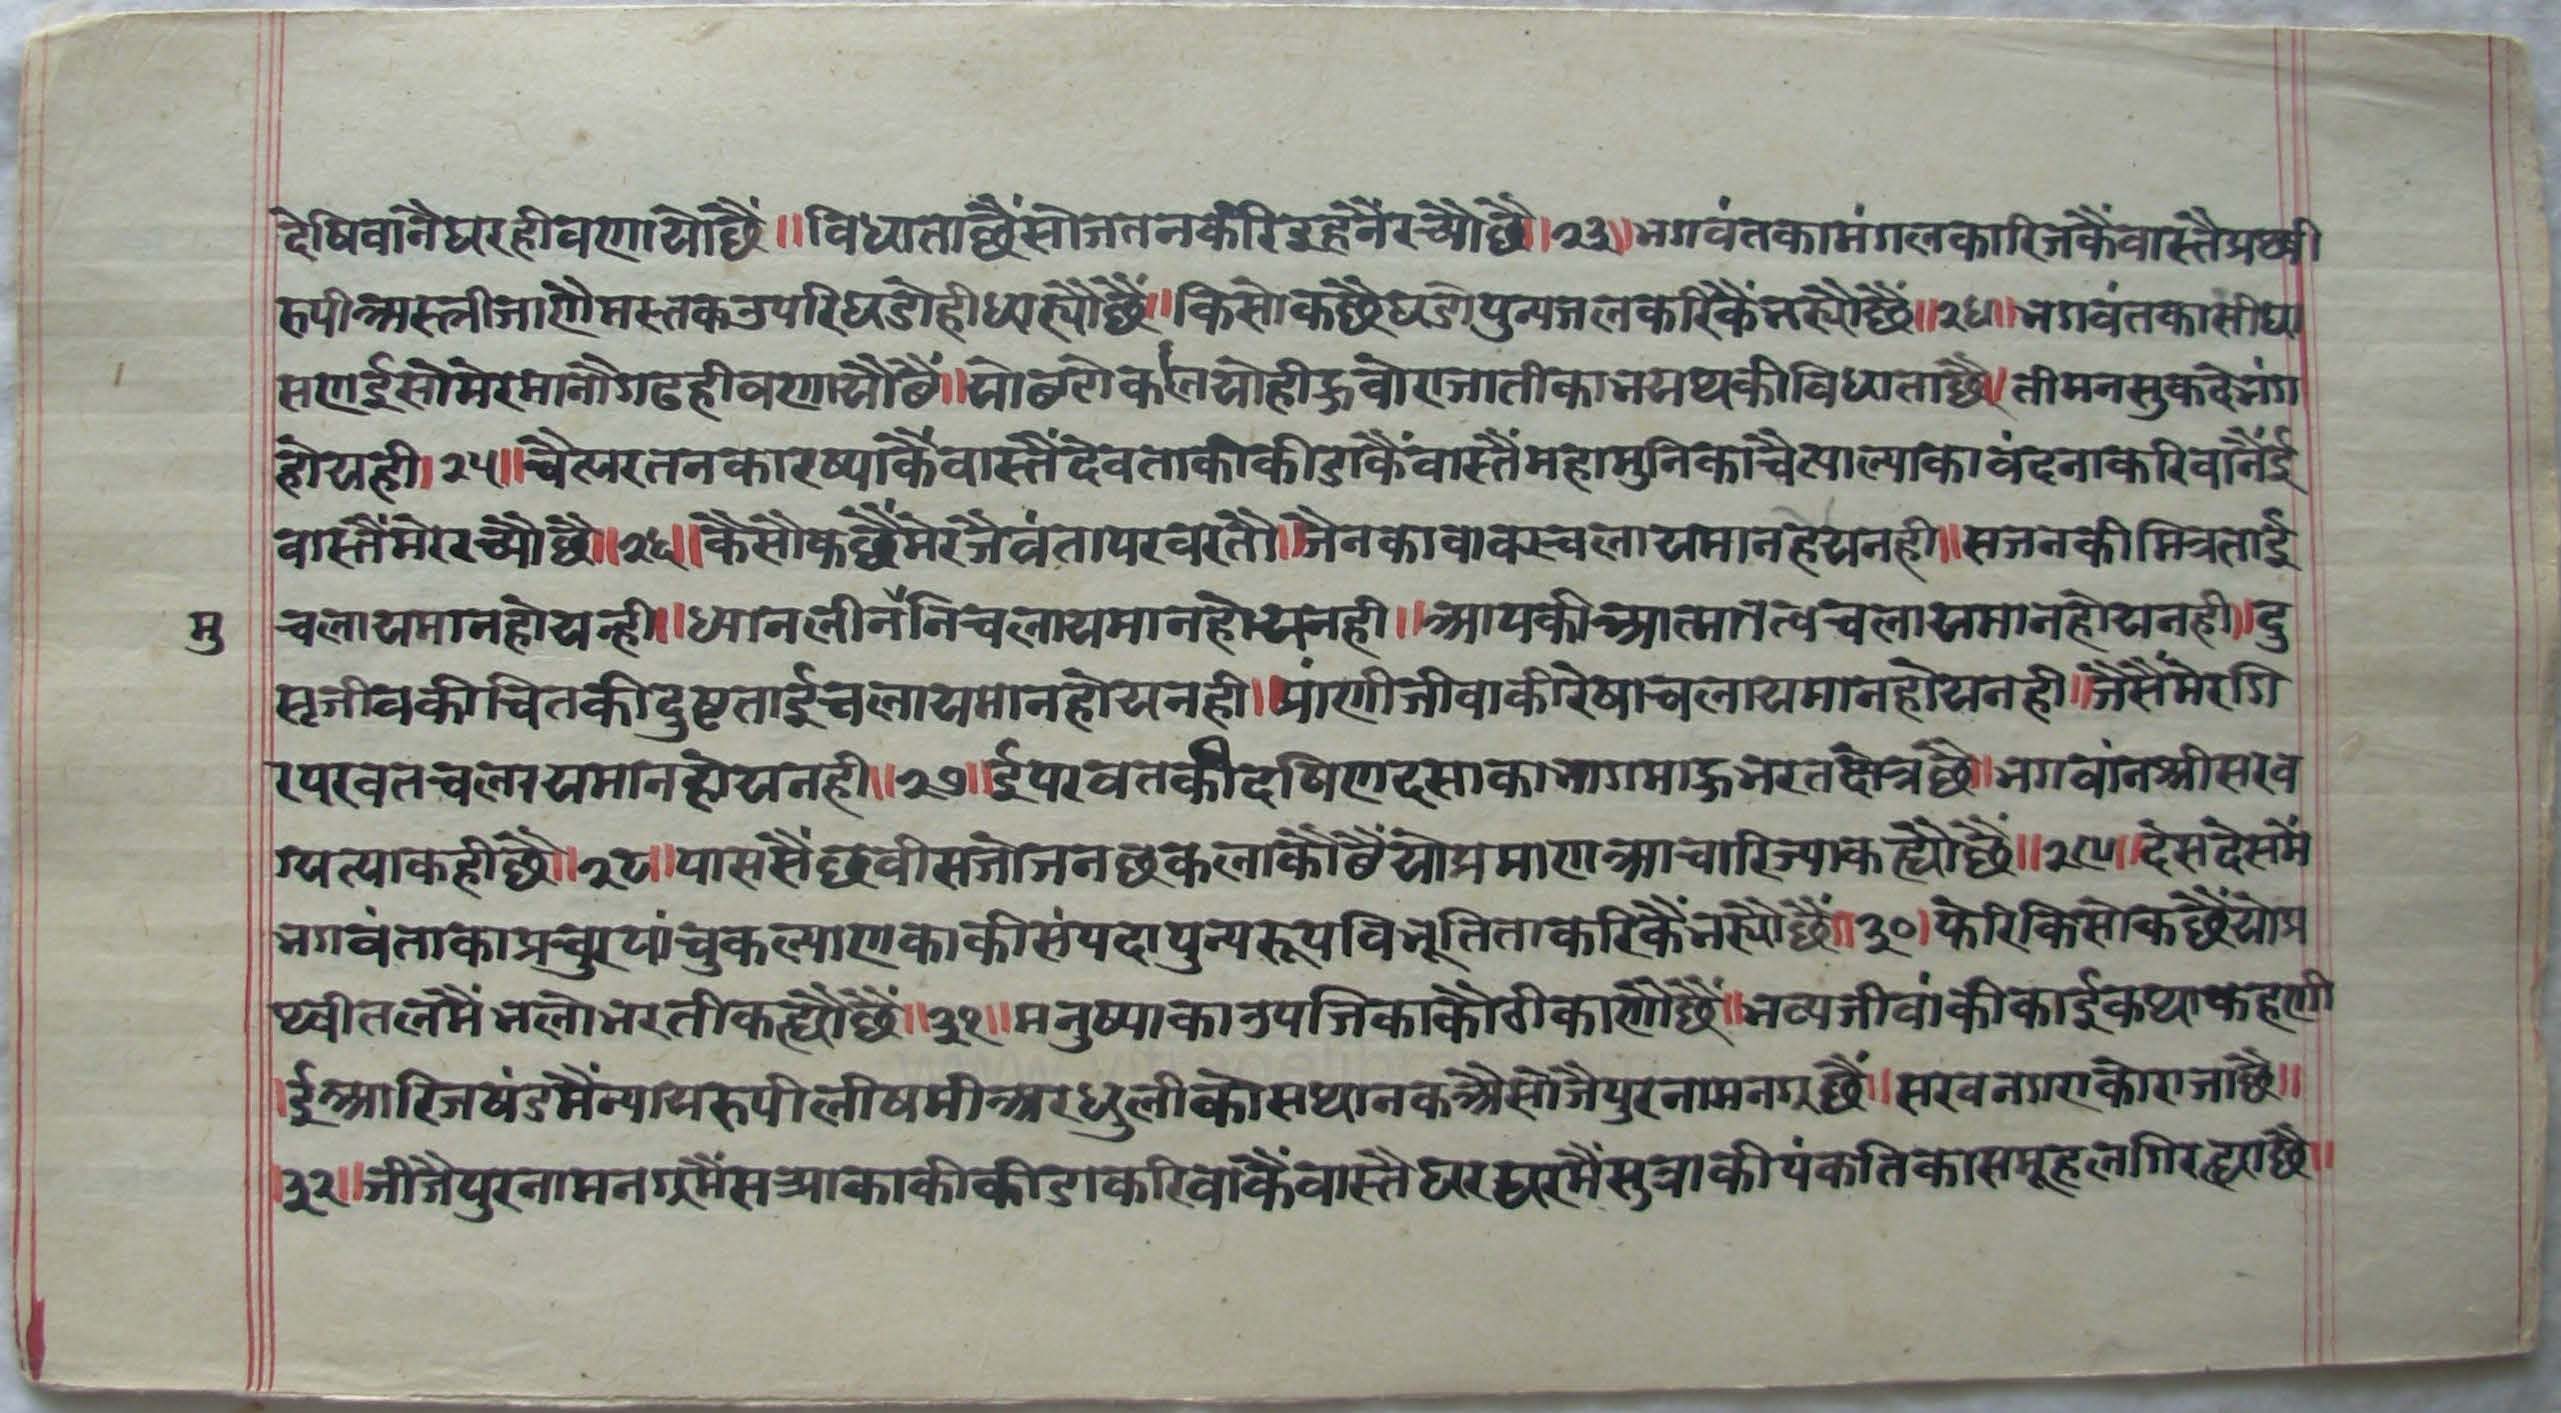 देषिवानैघरहीवणायोछैं॥विधाताछैंसोजतनकरिइहनैंरच्यौछै॥२३॥भगवंतकामंगलकारिजकैंवास्तैप्रथ्वी
रुपीअस्त्रीजाणौमस्तकउपरिघडोहीधास्यौछैं॥किसोकछैघडोपुन्यजलकरिकैंभस्यौछैं॥२४॥भगवंतकासीघा
सणईसोमेरमानौगढहीवणायौबैं॥योबणेकलियोहीऊवोराजातीकाभयथकीविधाताछै॥तीमनसुकदेभंग
होयही।२५॥चैत्यरतनकारष्याकैंवास्तैंदेवताकीकीडाकैंवास्तैंमहामुनिकाचैत्याल्याकावंदनाकरिवानैंई
वास्तैंमेरेरच्यौछै॥२६॥कैसौकछैंमेरजैवंतापरवरतौ॥जैनकावाकस्चलायमानहेयनही॥सजनकीमित्रताई
मु
चलायमानहोयन्ही॥ध्यानलीनैंनिचलायमानहोयनही॥आपकीआत्मातत्वचलायमानहोयनही॥दु
सृजीवकीचितकीदुष्टताईचलायमानहोयनही॥प्रांणीजीवाकीरेषाचलायमानहोयनही॥जैसैंमेरगि
रपरवतचलायमानहोयनही॥२७॥ईपरवतकीदषिणदसाकाभागमाऊभरतक्षेत्रछै॥भगवांनश्रीसरव
ग्यत्याकहीछै॥२८॥पाससैंछवीसजोजनछकलाकौबैंयोप्रमाणआचारिज्याकह्यौछैं॥२९॥देसदेसमें
भगवंताकाप्रचुरपांचुकल्याणकाकीसंपदापुन्यरूपविभूतिताकरिकैंभस्यौछैं॥३०।फेरिकिसोकछैंयोप्र
थ्वीतलमैंभलोभरतीकह्यौछैं॥३१॥मनुष्याकाउपजिकाकौठीकाणौछैं॥भव्यजीवांकीकाईकथाकहणी
।ईआरिजषंडमैंन्यायरुपीलीषमीअरधुलीकोसथानकअैसोजैपुरनामनग्रछैं॥सरवनगराकोराजाछै॥
।३२॥जीजैपुरनामनग्रमैंसआकाकीकीडाकरिवाकैंवास्तैघरघरमैंसुत्राकीपंकतिकासमूहलगिरह्याछै॥